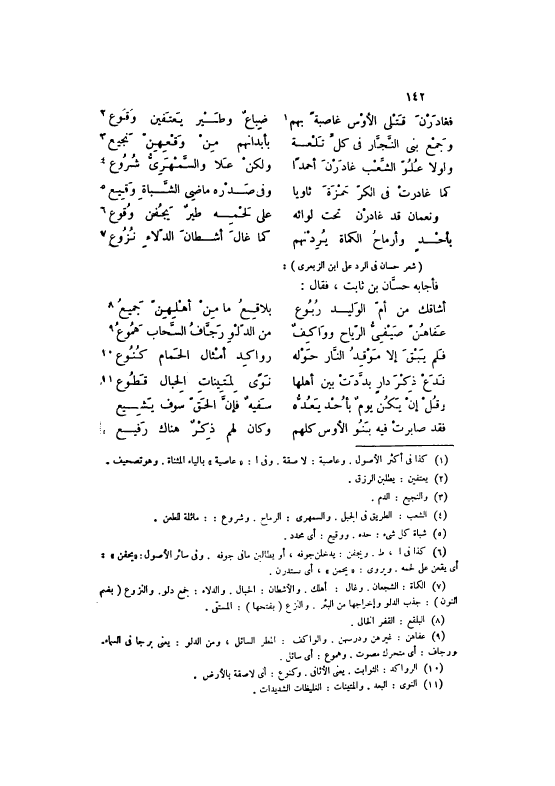 ١٤٢
فغادَرْنَ قَتْلى الأوْس غاصبةً بهم١ ضِباعٌ وطَيْرٌ يَعتَفين وَقوعُ٢
وجَمْعُ بنى النَّجَّار فى كلّ تَلْعة بأبدانهم مِنْ وَقْعِهِنّ نَجيعُ٣
ولولا عُلُوّ الشَّعْب غادَرْنَ أحمدًا ولكنْ عَلا والسَّمْهَرِىُّ شُرُوعُ٤
كما غادرتْ فى الكرّ حَمْزَةَ ثاويا وفى صَدْره ماضِى الشَّباة وَقيعُ٥
ونعمان قد غادرْن تحت لوائه على لَحْمه طيرٌ يَجُفْن وُقوعُ٦
بأُحْدٍ وأرماحُ الكماة يُرِدْنهم كما غالَ أشْطانَ الدّلاء نُزُوعُ٧
( شعر حسان فى الرد على ابن الزبعرى ) :
فأجابه حسَّان بن ثابت ، فقال :
أشاقك من أمّ الوليد رُبُوعُ بلاقعُ ما مِنْ أهْلِهِنّ جَميعُ٨
عَفاهُنّ صَيْفىُّ الرّياح وواكفٌ من الدّلْو رَجَّافُ السَّحاب هَمُوعُ٩
فلم يَبْقَ إلا مَوْقِدُ النار حَوْله رواكدُ أمْثال الحَمام كُنُوعُ١٠
فَدَعْ ذِكْرَ دارٍ بدَّدَتْ بين أهلها نَوًى لمَتِيناتِ الحِبال قَطُوعُ١١
وقُلْ إنْ يَكُن يومٌ بأُحْد يَعُدُّه سَفيهٌ فإنَّ الحَقّ سوف يَشيعُ
فقد صابرتْ فيه بَنُو الأوس كلهم وكان لهم ذِكْرٌ هناك رَفيعُ
(١) كذا فى أكثر الأصول . وعاصبة : لاصقة . وفى ا : « عاصية » بالياء المثناة . وهو تصحيف .
(٢) يعتفين : يطلبن الرزق .
(٣) والنجيع : الدم .
(٤) الشعب : الطريق فى الجبل . والسمهرى : الرماح . وشروع : : مائلة للطعن .
(٥) شباة كل شىء : حده . ووقيع : أى محدد .
(٦) كذا فى ا ، ط . ويجفن : يدخلن جوفه ، أو يطالبن مافى جوفه . وفى سائر الأصول : « يحفن » :
أى يقعن على لحمه . ويروى : « يحمن » ، أى يستدرن .
(٧) الكماة : الشجعان . وغال : أهلك . والأشطان : الحبال . والدلاء : جمع دلو . والنزوع ( بضم
النون ) : جذب الدلو وإخراجها من البئر . والنزع ( بفتحها ) : المستقى .
(٨) البلقع : القفر الخالى .
(٩) عفاهن : غيرهن ودرسهن . والواكف : المطر السائل ، ومن الدلو : يعنى برجا فى السماء .
ورجاف : أى متحرك مصوت . وهموع : أى سائل .
(١٠) الرواكد : الثوابت . يعنى الأثافى . وكنوع : أى لاصقة بالأرض .
(١١) النوى : البعد . والمتينات : الغليظات الشديدات .